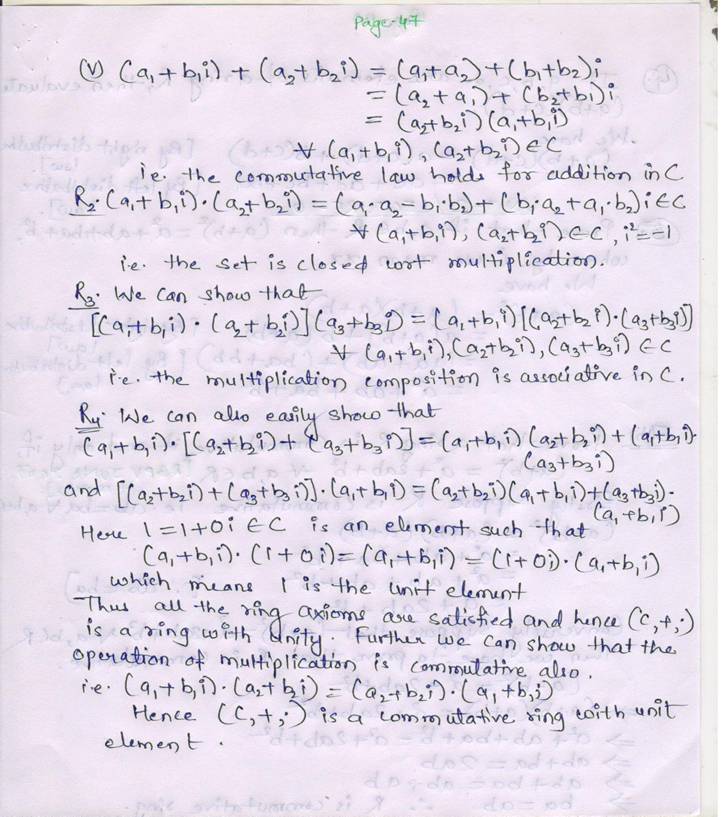 Page-47
(V) (a₁+b₁i) + (a₂+b₂i) = (a₁+a₂) + (b₁+b₂)i
= (a₂+a₁) + (b₂+b₁)i
= (a₂+b₂i)(a₁+b₁i)
∀ (a₁+b₁i), (a₂+b₂i) ∈ C
i.e. the commutative law holds for addition in C
R₂. (a₁+b₁i)·(a₂+b₂i) = (a₁·a₂-b₁·b₂) + (b₁·a₂+a₁·b₂)i ∈ C
∀ (a₁+b₁i), (a₂+b₂i) ∈ C, i²=-1
i.e. the set is closed wrt multiplication.
R₃. We can show that
[(a₁+b₁i)·(a₂+b₂i)](a₃+b₃i) = (a₁+b₁i)[(a₂+b₂i)·(a₃+b₃i)]
∀ (a₁+b₁i), (a₂+b₂i), (a₃+b₃i) ∈ C
i.e. the multiplication composition is associative in C.
R₄. We can also easily show that
(a₁+b₁i)·[(a₂+b₂i)+(a₃+b₃i)] = (a₁+b₁i)(a₂+b₂i)+(a₁+b₁i)·
(a₃+b₃i)
and [(a₂+b₂i)+(a₃+b₃i)]·(a₁+b₁i) = (a₂+b₂i)(a₁+b₁i)+(a₃+b₃i)·
(a₁+b₁i)
Here 1=1+0i ∈ C is an element such that
(a₁+b₁i)·(1+0i) = (a₁+b₁i) = (1+0i)·(a₁+b₁i)
which means 1 is the unit element
Thus all the ring axioms are satisfied and hence (C,+,·)
is a ring with unity. Further we can show that the
operation of multiplication is commutative also.
i.e. (a₁+b₁i)·(a₂+b₂i) = (a₂+b₂i)·(a₁+b₁i)
Hence (C,+,·) is a commutative ring with unit
element.